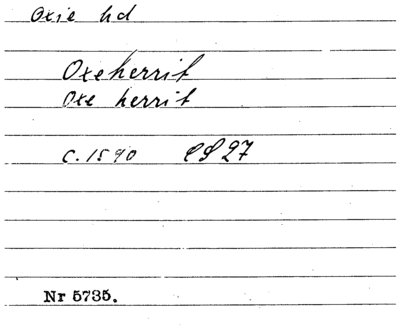 Oxie hd
Oxeherrit
Oxe herrit
c. 1590 CS 27
Nr 5735.